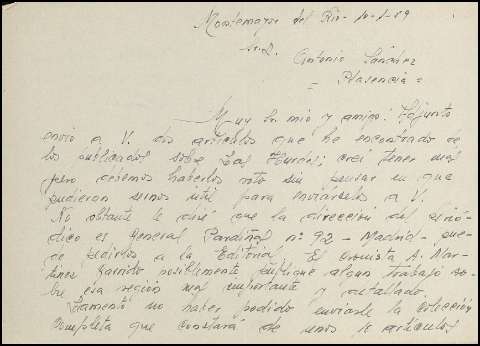 Montemayor del Rio - 10-8-89
Sr. D.
Antonio Sánchez
= Plasencia =
Muy Sr. mio y amigo: Adjunto
envio a V. dos articulos que he encontrado de
los publicados sobre Las Hurdes; crei tener más
pero debemos haberlos roto sin pensar en que
pudieron sernos útil para enviárselos a V.
No obtante le diré que la dirección del perió-
dico es General Pardiñas nº 92 - Madrid - pue-
de pedirlos a la Editorial. El cronista A. Mar-
tinez Garrido posiblemente publique algun trabajo so-
bre esa región más importante y detallado.
Lamento no haber podido enviarle la colección
completa que constará de unos artículos